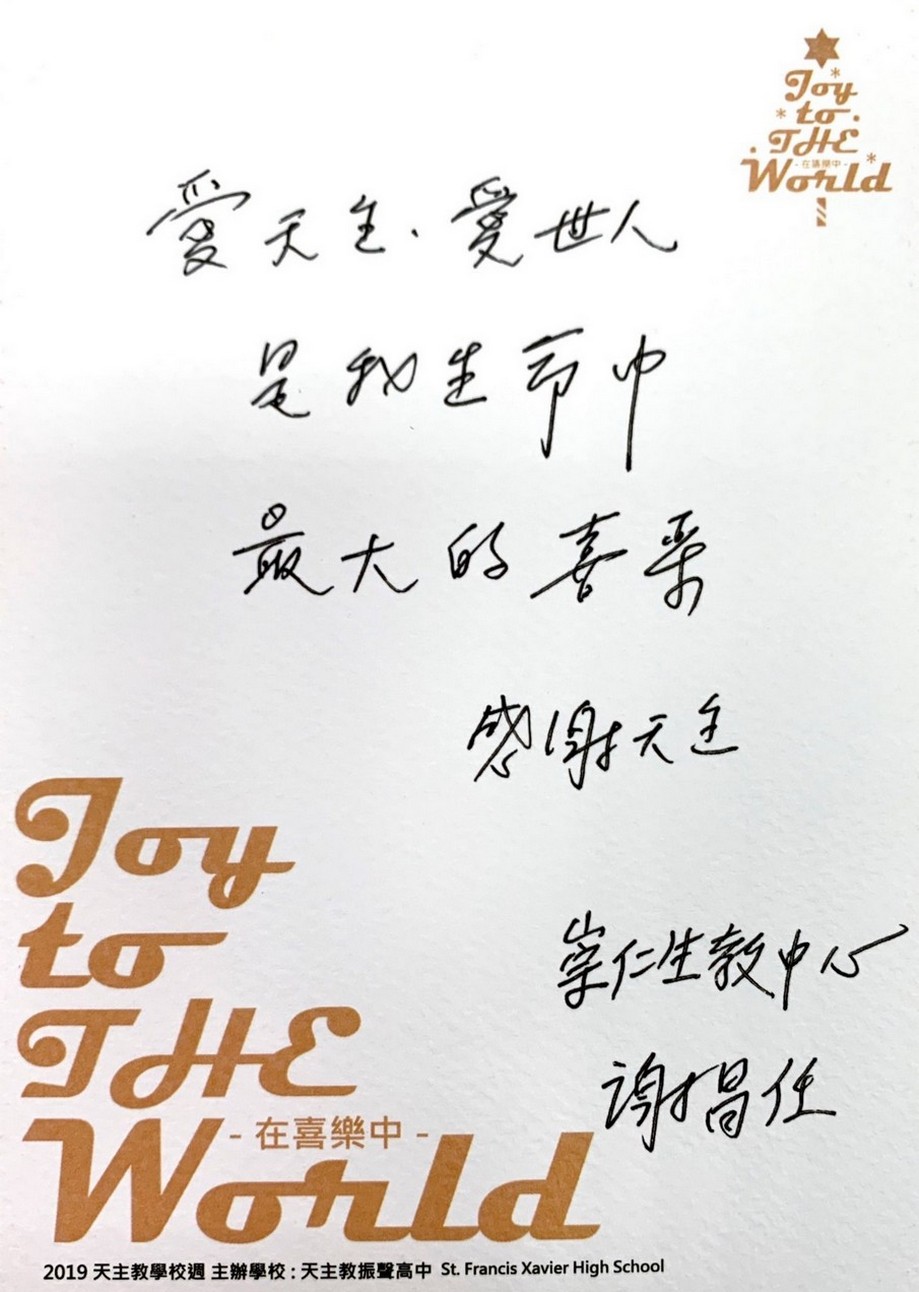 Joy
to
THE
- 在喜樂中 -
World
愛天主、愛世人
是我生命中
最大的喜樂
感謝天主
崇仁生教中心
謝昌任
Joy
to
THE
- 在喜樂中 -
World
2019 天主教學校週 主辦學校 : 天主教振聲高中 St. Francis Xavier High School